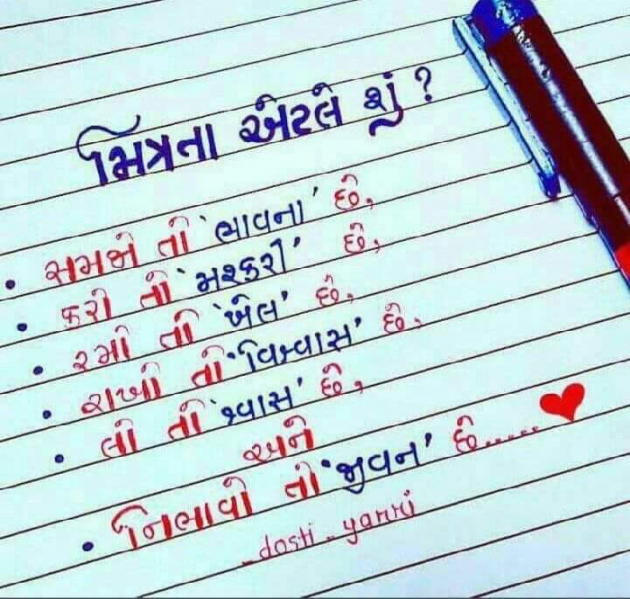 મિત્રતા એટલે શું ?
• સમજો તો 'ભાવના' છે,
• કરો તો 'મશ્કરી' છે,
• રમો તો 'ખેલ' છે,
• રાખો તો 'વિશ્વાસ' છે,
• લો તો 'શ્વાસ' છે,
અને
• નિભાવો તો 'જીવન' છે.....
_dosti_yarri